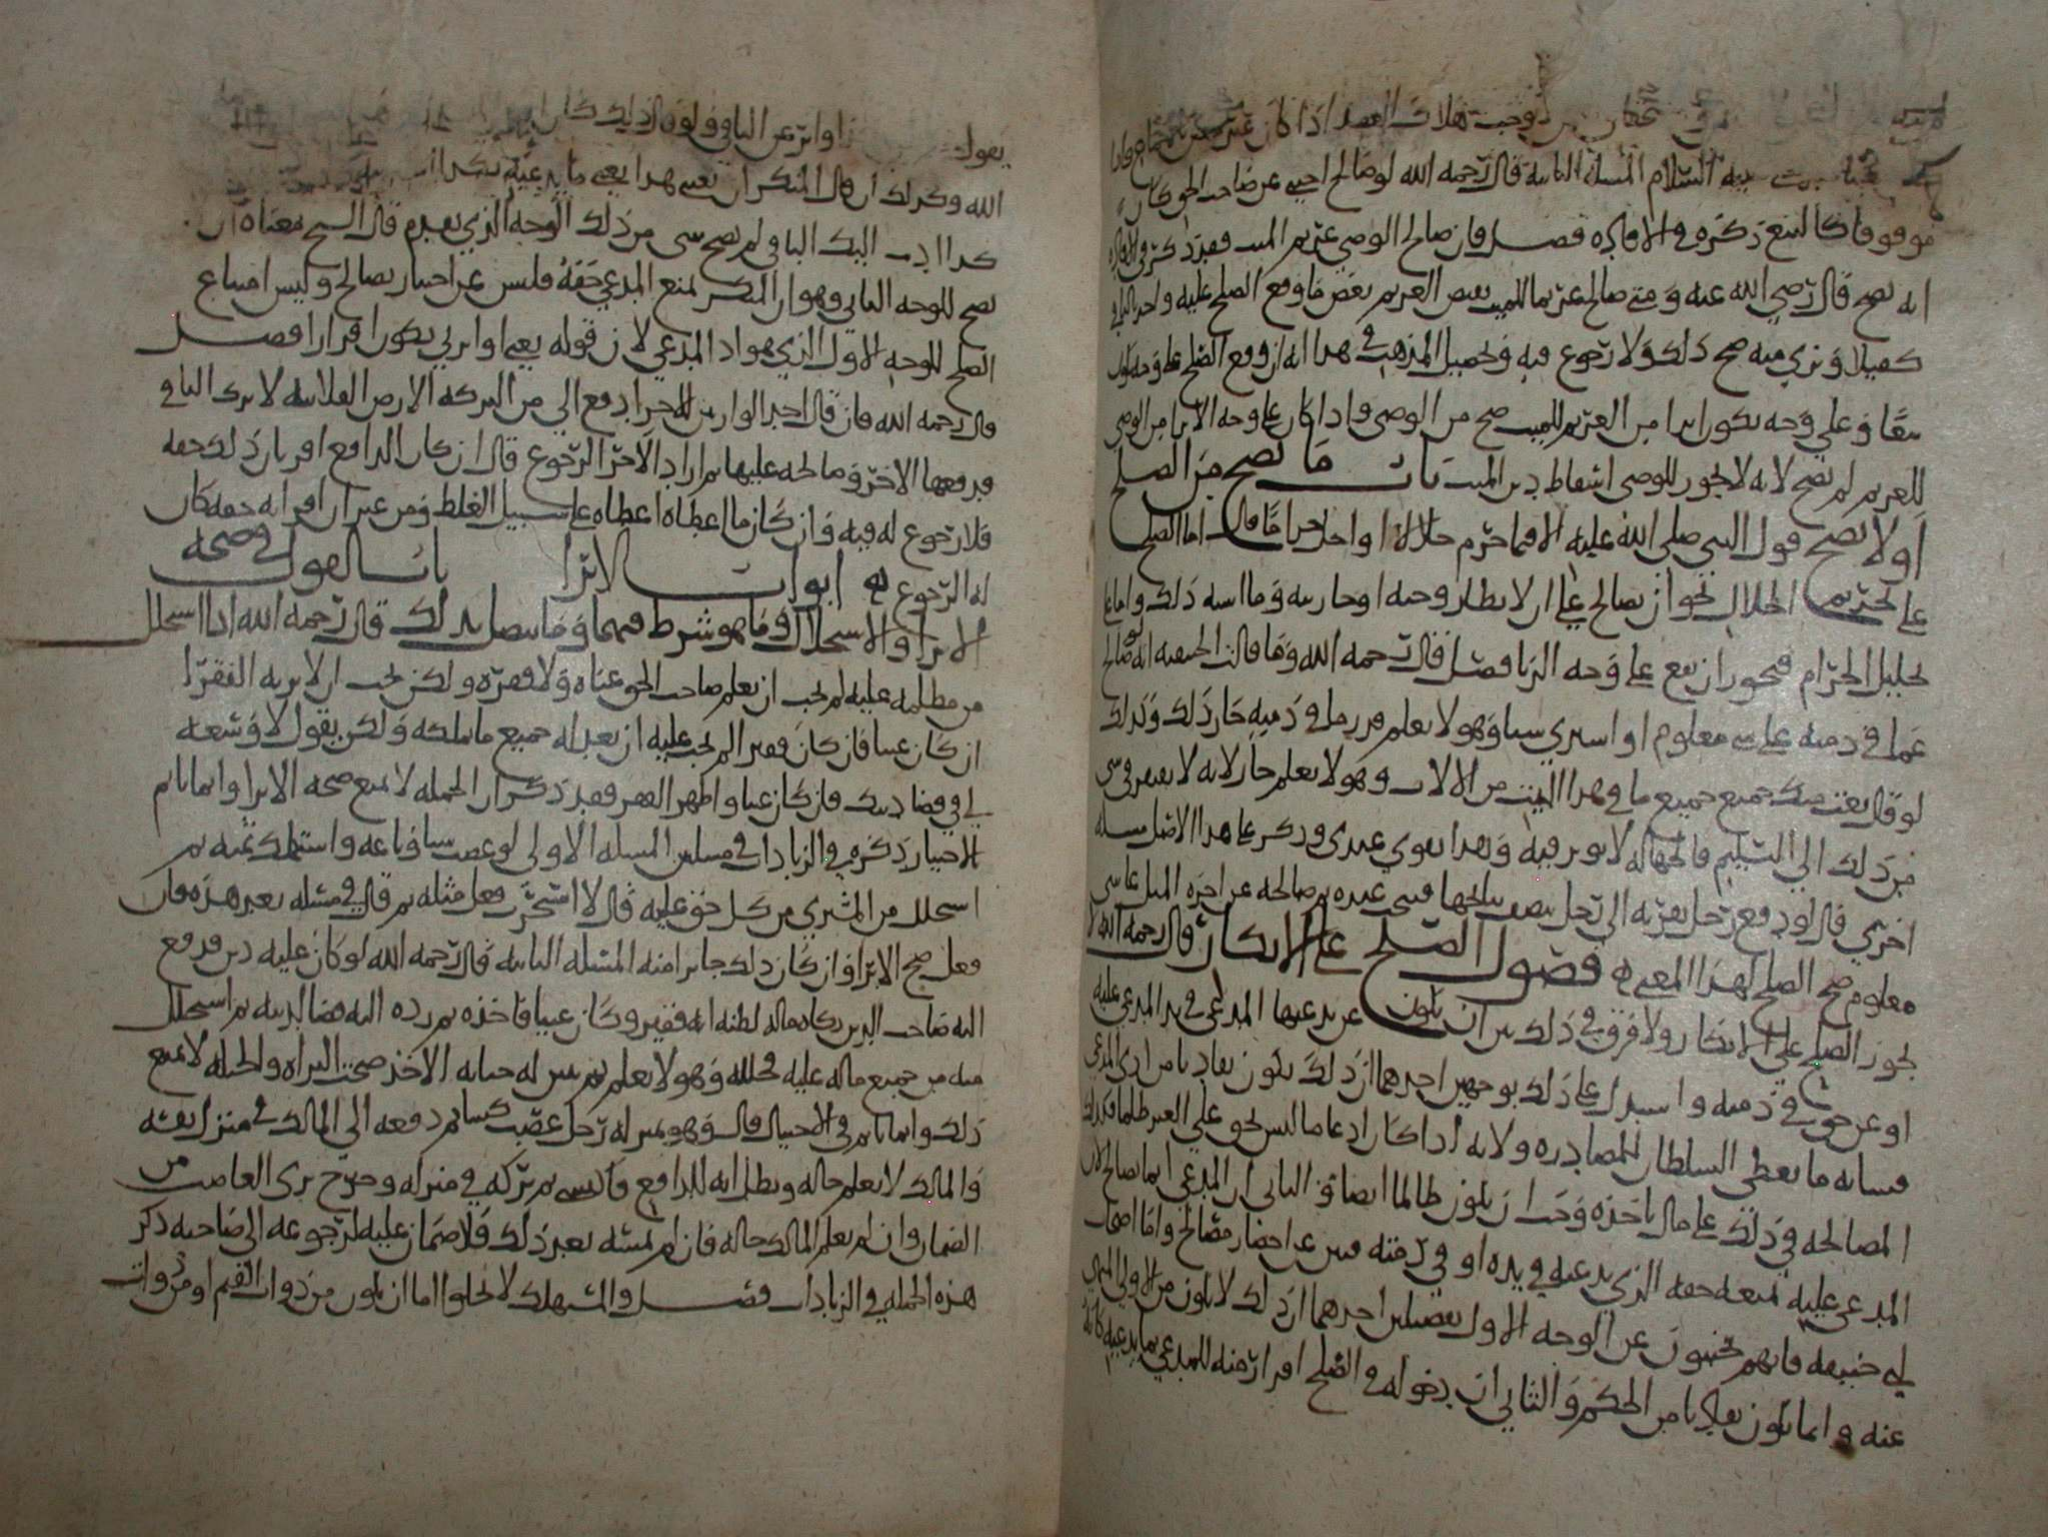 وجبت هلاك العبد اذا كان
عليه السلام المسلة الثانية قال رحمه الله لو صالح اجنبي عن صاحب الحق كان
موقوفا كالبيع ذكره في الافادة فصل فان صالح الوصي غريم الميت فقد ذكر في الافادة
انه يصح قال رضي الله عنه ومتى صالح غريما للميت بعض الغريم بعض ما وقع الصلح عليه واخذ بالباقي
كفيلا وبري منه صح ذلك ولا رجوع فيه وتحصيل المذهب في هذا انه ان وقع الصلح على وجه يكون
بيعا وعلى وجه يكون ابرا من الغريم للميت صح من الوصي واذا كان على وجه الابرا من الوصي
للغريم لم يصح لانه لا يجوز للوصي اسقاط دين الميت باب ما يصح من الصلح
او لا يصح قول النبي صلى الله عليه الا فيما حرم حلالا او احل حراما قال اما الصلح
على تحريم الحلال نحو ان يصالح على ان لا يطا زوجته او جاريته وما اشبه ذلك واما على
تحليل الحرام فنحو ان يقع على وجه الربا فصل قال رحمه الله وما قالت الحنفية انه لو صالح
عما في ذمته على شي معلوم او اشترى شيا وهو لا يعلم قدر ما في ذمته جاز ذلك وكذلك
لو قال بعت منك جميع ما في هذا البيت من الالات وهو لا يعلم جاز لانه لا يفتقر في شي
من ذلك الى التسليم فالجهالة لا توثر فيه وهذا يقوي عندي وذكر على هذا الاصل مسلة
اخرى قال لو دفع رجل بقرته الى رجل بنصف نتاجها فمضى عنده ثم صالحه عن اجرة المثل على شي
معلوم صح الصلح لهذا المعنى فصول الصلح على الانكار قال رحمه الله لا
يجوز الصلح على الانكار ولا فرق في ذلك بين ان يكون عن يد عينها المدعي في يد المدعى عليه
او عن حق في ذمته واستدل على ذلك بوجهين احدهما ان ذلك يكون تفاديا من اذى المدعي
فشابه ما يعطى السلطان للمصادرة ولانه اذا كان ادعا ما ليس بحق على الغير ظلما فكذلك
المصالحة في ذلك على مال ياخذه وجب ان يكون ظالما ايضا والثاني ان المدعي انما صالح لان
المدعى عليه يمنعه حقه الذي يدعيه في يده او في ذمته فليس عن اختيار مصالح واما اصحاب
ابي حنيفة فانهم يجيبون عن الوجه الاول بفصلين احدهما ان ذلك لا يكون من الاولى المنهي
عنه وانما يكون تفاديا من الحكم والثاني ان دخوله في الصلح اقرار منه للمدعي بما يدعيه كانه
يقول او ابر عن الباقي ولو قال ذلك كان
الله وكذلك ان قال المنكر ان تعين هذا يعني ما يدعيه بكذا
كذا اديت اليك الباقي لم يصح شي من ذلك الوجه الذي تقدم قال الشيخ معناه ان
يصح للوجه الثاني وهو ان المنكر يمنع المدعي حقه فليس عن اختيار يصالح وليس امتناع
الصلح للوجه الاول الذي هو اذ المدعي لان قوله بعني او ابرني يكون اقرارا فصل
قال رحمه الله فان قال احد الوارثين للاخر ادفع الي من التركة الارض الفلانية لاترك الباقي
فدفعها الاخر وصالحه عليها ثم اراد الاخر الرجوع قال ان كان الدافع اقر بان ذلك حقه
فلا رجوع له فيه وان كان ما اعطاه اعطاه على سبيل الغلط ومن غير ان اقر انه حقه كان
له الرجوع ابواب الابرا باب القول في صحة
الابرا والاستحلال وما هو شرط فيهما وما يتصل بذلك قال رحمه الله اذا استحلل
من مظلمة عليه لم يجب ان يعلم صاحب الحق غناه ولا فقره ولكن يجب ان لا يريه الفقر
ان كان غنيا فان كان فقيرا لم يجب عليه ان يعد له جميع ما يملكه ولكن يقول لا وسعة
لي في قضا دينك فان كان غنيا واظهر الفقر فقد ذكر ان الحيلة لا تمنع صحة الابرا وانما ياثم
المحتال ذكره في الزيادات في مسلتين المسلة الاولى لو غصب شيا وباعه واستهلك ثمنه ثم
استحلل من المشتري من كل حق عليه قال لا استجيز فعل مثله ثم قال في مسلة بعد هذه فان
فعل صح الابرا وان كان ذلك جائرا منه المسلة الثانية قال رحمه الله لو كان عليه دين فدفع
اليه صاحب الدين زكاة ماله لظنه انه فقير وكان غنيا فاخذه ثم رده اليه قضا لدينه ثم استحلل
منه من جميع ماله عليه فحلله وهو لا يعلم ثم تبين له خيانة الاخذ صحت البراة والحيلة لا تمنع
ذلك وانما ياثم في الاحتيال قال وهو بمنزلة رجل غصب كيسا ثم دفعه الى المالك في منزل نفسه
والمالك لا يعلم حاله ويظن انه للدافع فاكيسه ثم تركه في منزله وخرج برئ الغاصب من
الضمان وان لم يعلم المالك حاله فان لم يمسه بعد ذلك فلا ضمان عليه لرجوعه الى صاحبه ذكر
هذه الجملة في الزيادات فصل والمستهلك لا يخلوا اما ان يكون من ذوات القيم او من ذوات